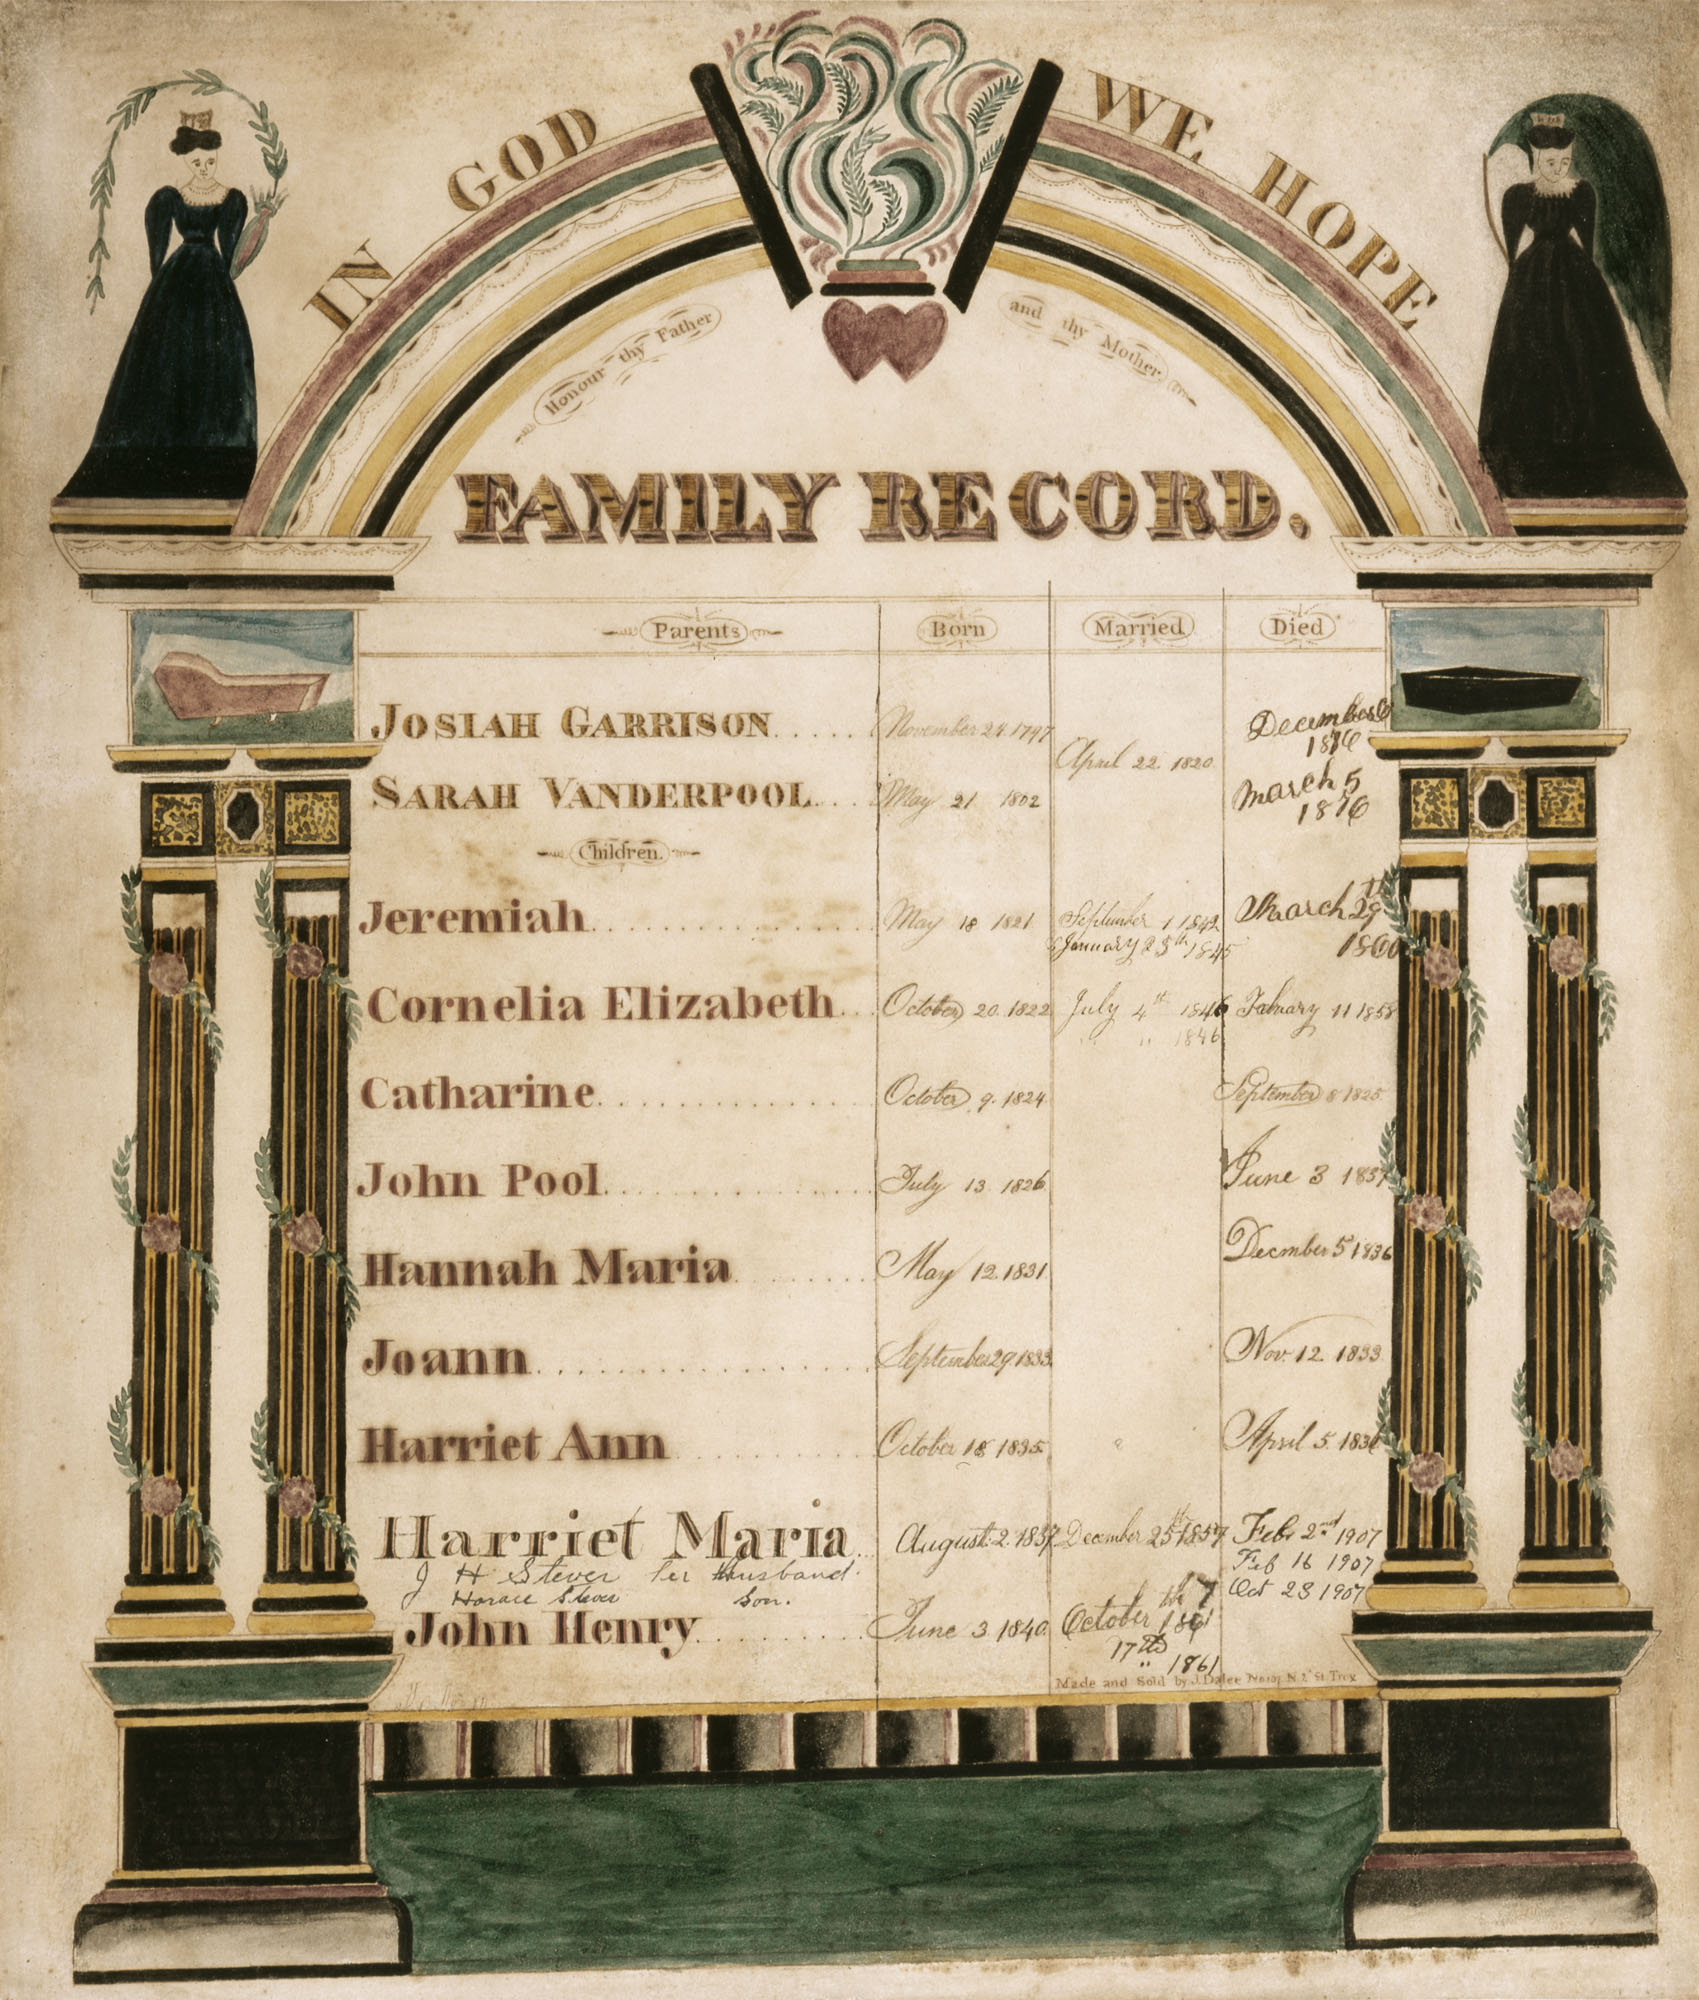 IN GOD WE HOPE
Honour thy Father and thy Mother
FAMILY RECORD.
Parents Born Married Died
JOSIAH GARRISON November 24. 1797 December 6
April 22 1820 1876
SARAH VANDERPOOL May 21 1802 March 5
1876
Children.
Jeremiah May 18 1821 September 1 1842 March 29th
January 23th 1845 1860
Cornelia Elizabeth October 20. 1822 July 4th 1846 Fabuary 11 1858
" " 1846
Catharine October 9. 1824 September 8 1825
John Pool July 13 1826 June 3 1837
Hannah Maria May 12. 1831 Decmber 5 1836
Joann September 29. 1833 Nov. 12 1833
Harriet Ann October 18 1835 April 5. 1836
Harriet Maria August. 2. 1837 December 25th 1857 Feb. 2nd 1907
J H Stever her Husband. Feb 16 1907
Horace Stever Son. Oct 23 1907
John Henry June 3 1840. October th 7
1861
17th
" 1861
Made and Sold by J. Dalee No 107 N. 2d St. Troy